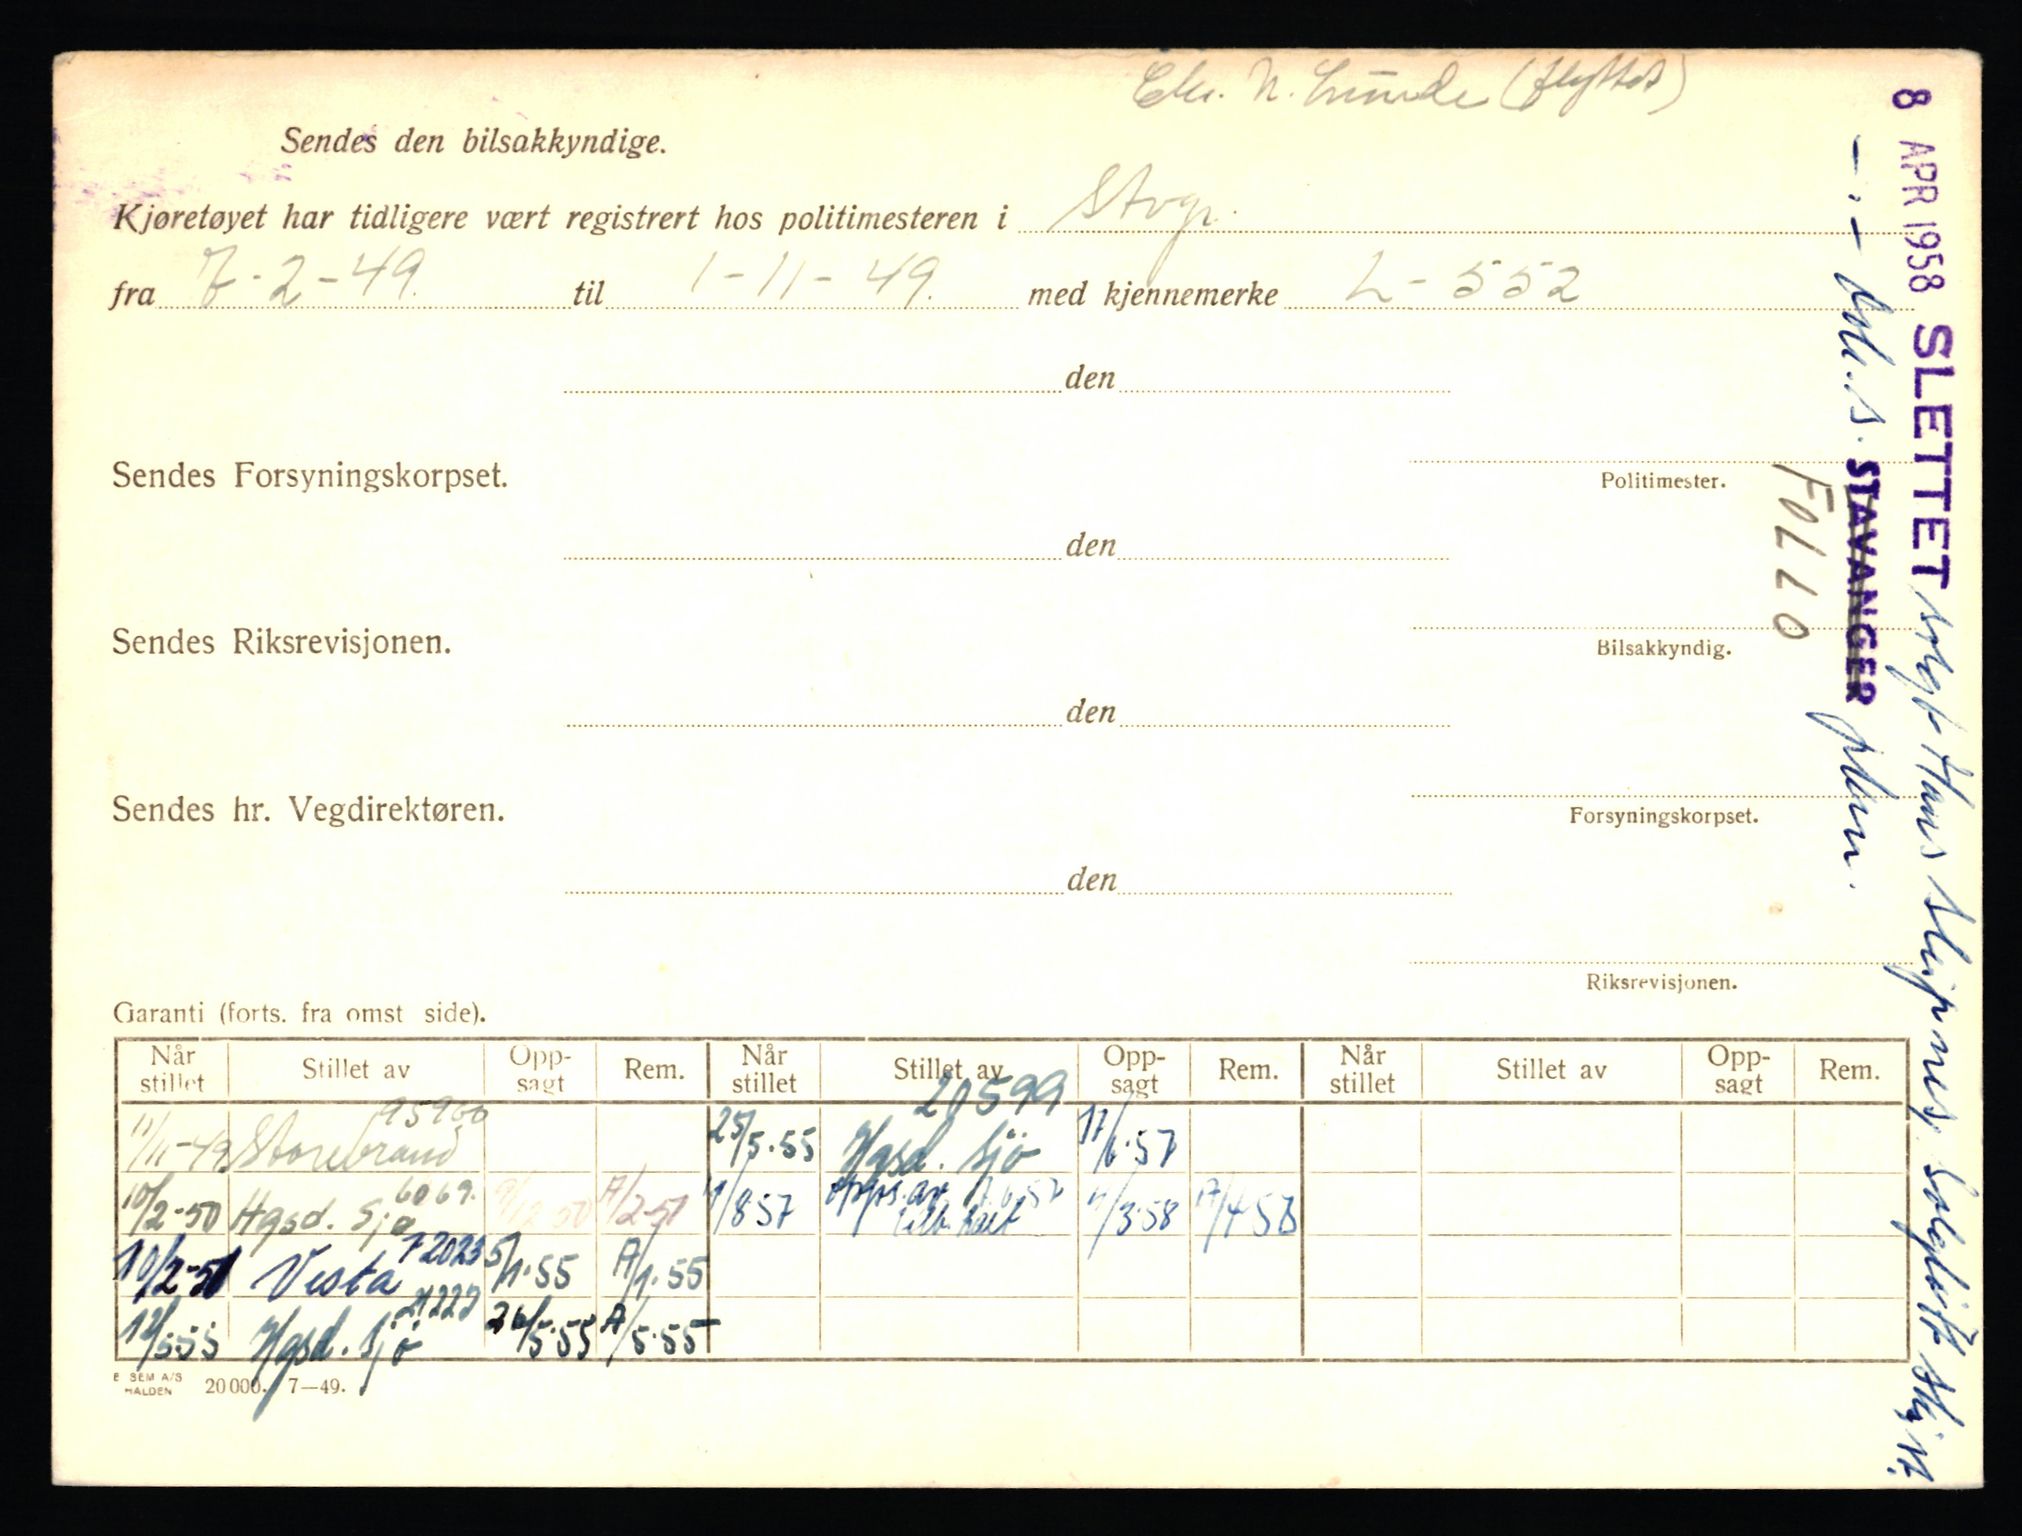 Chr. N. Lunde (flyttet)
Sendes den bilsakkyndige.
Kjøretøyet har tidligere vært registrert hos politimesteren i Stvgr.
fra 7-2-49. til 1-11-49. med kjennemerke L-552
den
Sendes Forsyningskorpset.
Politimester.
den
Sendes Riksrevisjonen.
Bilsakkyndig.
den
Sendes hr. Vegdirektøren.
Forsyningskorpset.
den
Riksrevisjonen.
Garanti (forts. fra omst side).
Når stillet Stillet av Opp-sagt Rem. Når stillet Stillet av Opp-sagt Rem. Når stillet Stillet av Opp-sagt Rem.
11/11-49 Storebrand 95900 25/5.55 Hgsd. Sjö 20599 17/6.57
10/2-50 Hgsd. Sjø 6069. 9/12 50 A/2-51 1/8 57 3.58 A/4 58
10/2-51 Vesta 72023 5/1.55 A/1.55
12/5 55 Hgsd. Sjö 21222 26/5.55 A/5.55
E SEM A/S
HALDEN 20000. 7—49.
8 APR 1958 SLETTET solgt Hans
STAVANGER
FOLLO